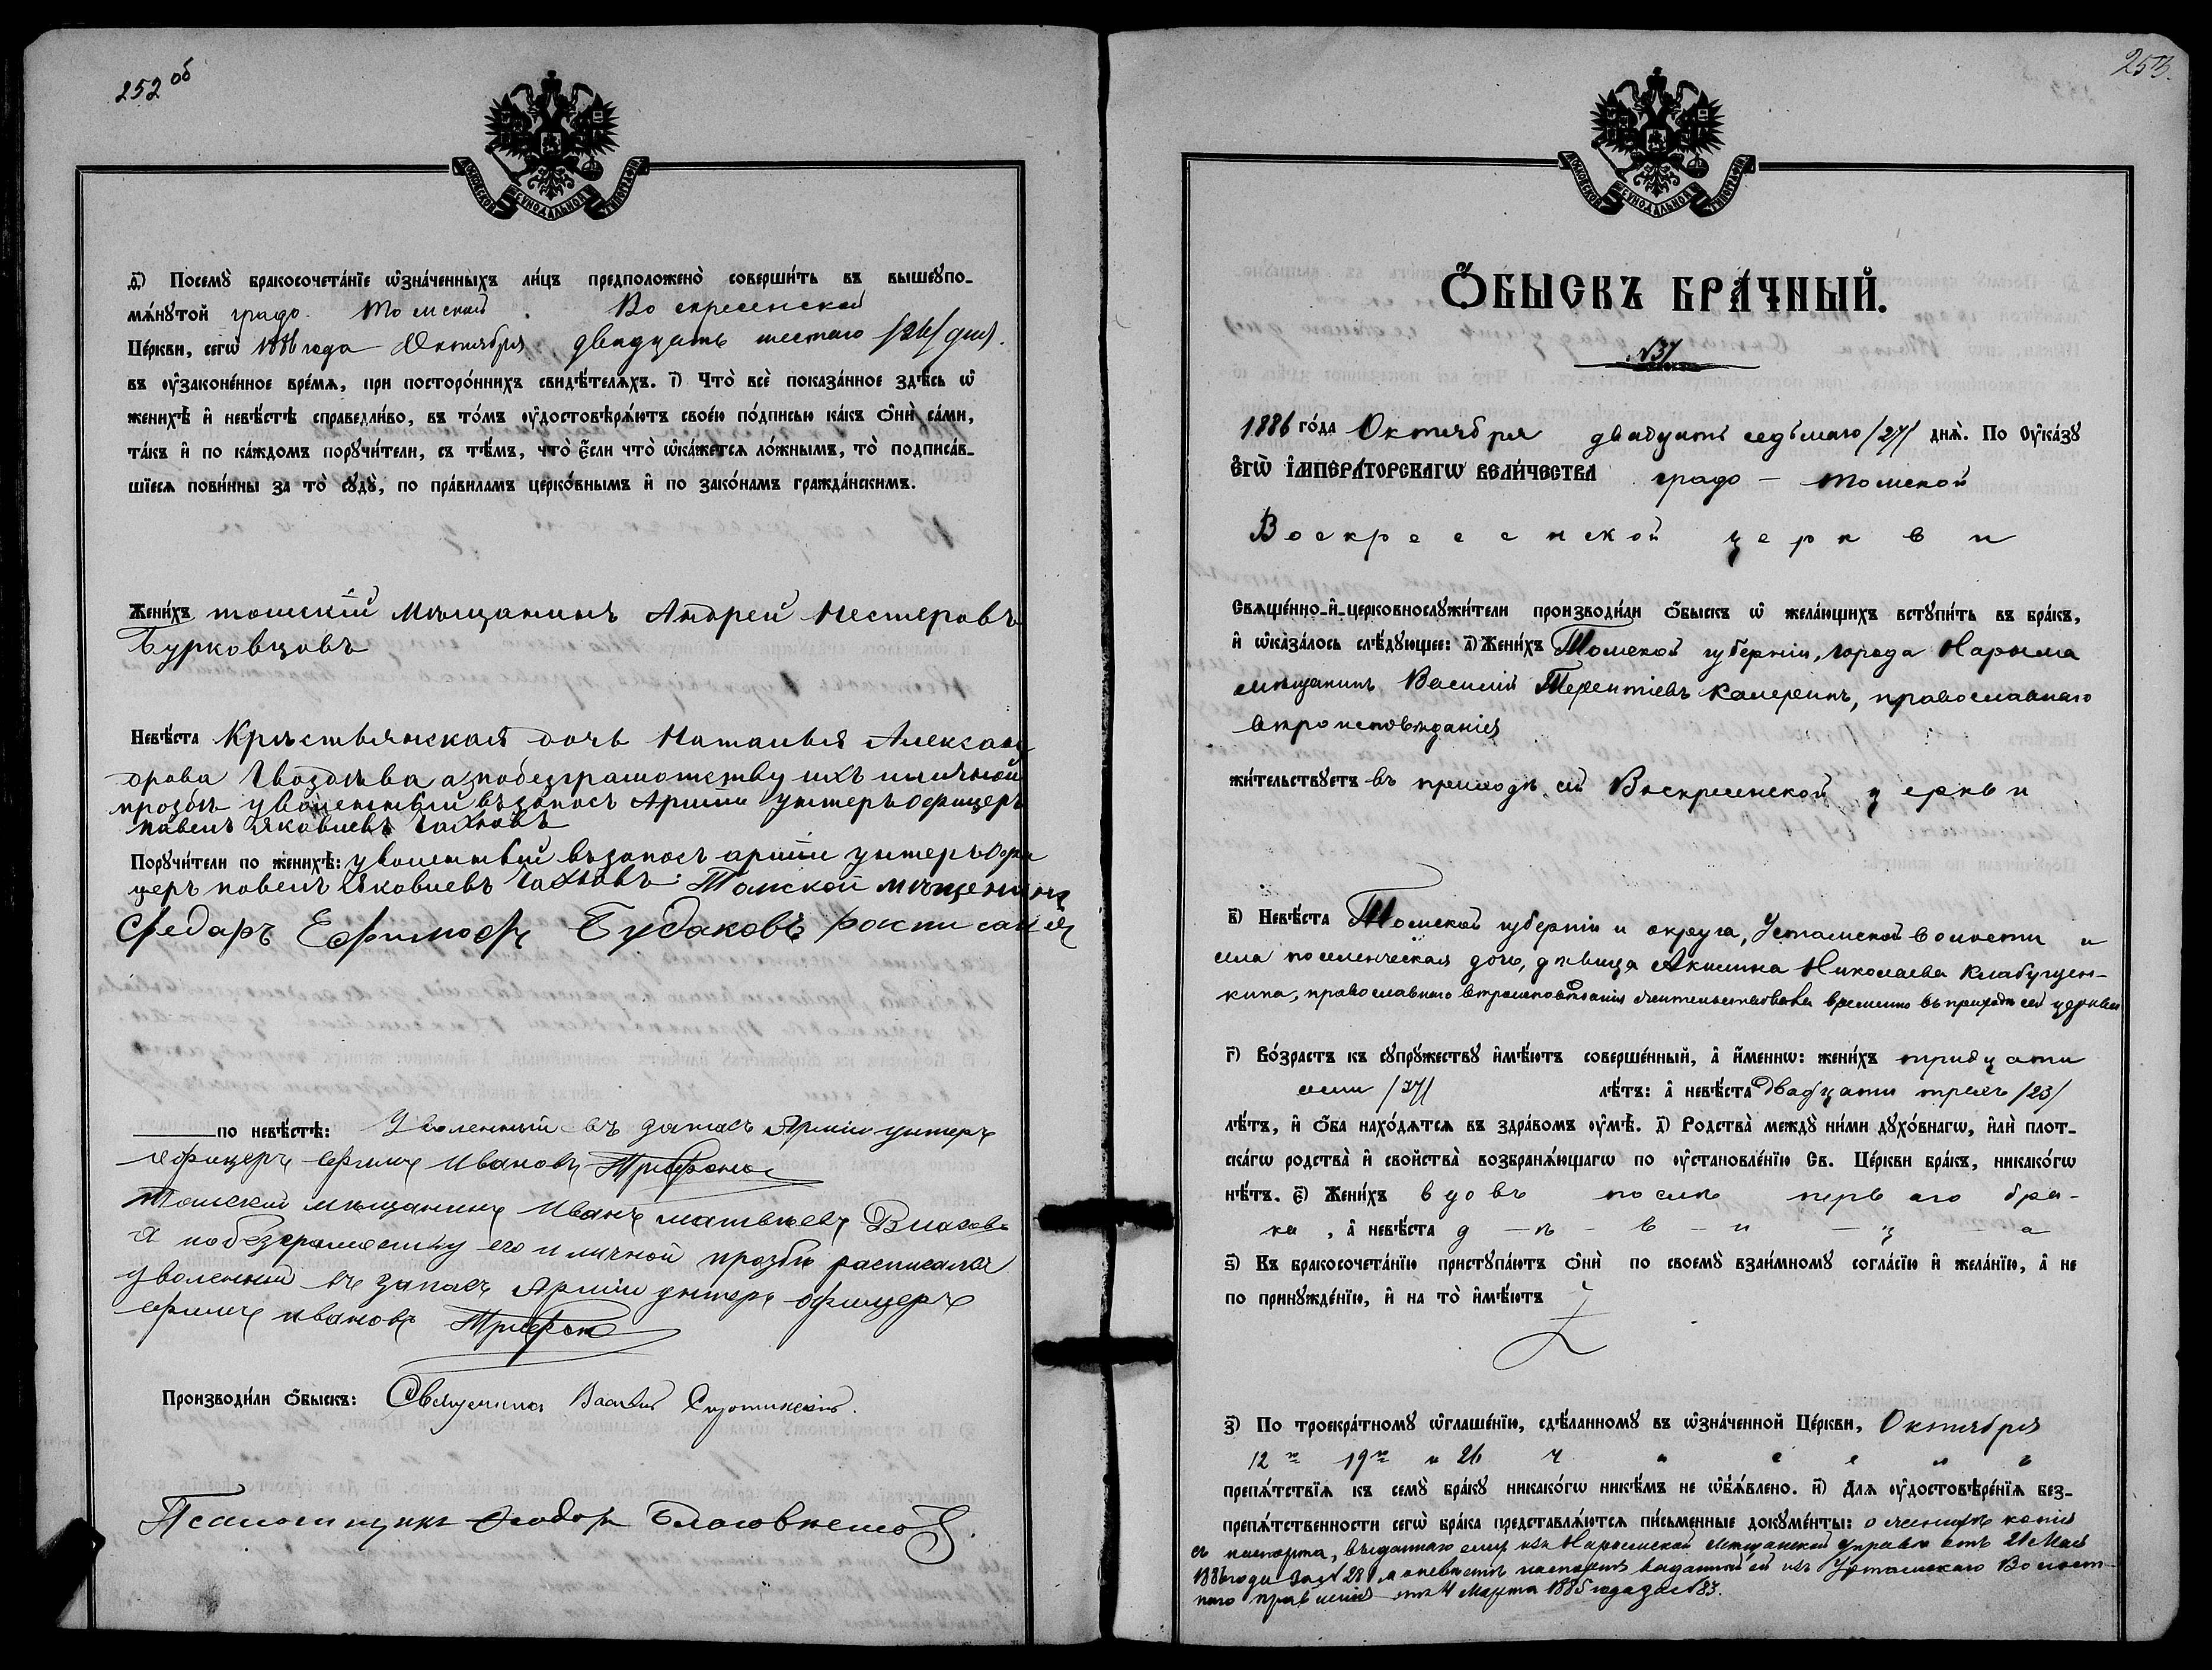 252 об
МОСКОВСКОЙ СѴНОДАЛЬНОЙ ТИПОГРАФІИ
д҃) Посемꙋ̀ бракосочета́нїе ѡ҆зна́ченныхъ ли́цъ предположено̀ соверши́ть въ вышеꙋпо-
мѧ́нꙋтой градо Томской Воскресенской
Це́ркви, сегѡ̀ 1886 года Октября двадцать шестаго /26/ дня.
въ ᲂу҆зако́ненное вре́мѧ, при посторо́ннихъ свидѣ́телѧхъ. і҃) Что̀ всѐ пока́занное здѣ́сь ѡ҆
женихѣ̀ и҆ невѣ́стѣ справедли́во, въ то́мъ ᲂу҆достовѣрѧ́ютъ свое́ю по́дписью ка́къ ѻ҆нѝ са́ми,
та́къ и҆ по ка́ждомъ порꙋчи́тели, съ тѣ́мъ, что̀ є҆́сли что̀ ѡ҆ка́жетсѧ ло́жнымъ, то̀ подписа́в-
шїесѧ пови́нны за то̀ сꙋдꙋ̀, по пра́виламъ церко́внымъ и҆ по зако́намъ гражда́нскимъ.
Жени́хъ томскій Мѣщанинъ Андрей Нестеровъ
Бурковцовъ
Невѣ́ста Крѣстьянская дочь Наталья Алексан
дрова Гвоздѣва а побезграмотству ихъ иличной
прозбѣ уволенный въ запосъ Арміи унтеръ офицеръ
павелъ Яковлевъ
Порꙋчи́тели по женихѣ̀: уволенный въ запосъ арміи унтеръ Офи
церъ павелъ Яковлевъ Томской мѣщенинъ
Федаръ Ефимофъ Будаковъ росписался
по невѣ́стѣ: Уволенный въ запасъ Арміи унтеръ
офицеръ Ефимъ Ивановъ Трифоно
Томскій мѣщанинъ Иванъ матвѣевъ Власовъ
а побезграмоству его и личной прозбѣ расписался
уволенный въ запасъ Арміи унтеръ офицеръ
Ефимъ Ивановъ Трифоно
Производи́ли ѻ҆́быскъ: Священникъ Василій Сиротинскій.
Псаломщикъ Ѳеодоръ
253.
МОСКОВСКОЙ СѴНОДАЛЬНОЙ ТИПОГРАФІИ
Ѻ҆́БЫСКЪ БРА́ЧНЫЙ.
№ 37
1886 го́да Октября двадцать седьмаго /27/ днѧ̀. По ᲂу҆ка́зꙋ
Є҆ГѠ̀ И҆МПЕРА́ТОРСКАГѠ ВЕЛИ́ЧЕСТВА градо - Томской
Воскресенской церкви
Свѧще́нно-и҆-церковнослꙋжи́тели производи́ли ѻ҆́быскъ ѡ҆ жела́ющихъ встꙋпи́ть въ бра́къ,
и҆ ѡ҆каза́лось слѣ́дꙋющее: а҃) Жени́хъ Томской губерніи, города Нарыма
мѣщанинъ Василій Терентіевъ Камеринъ, православнаго
вѣроисповѣданія
жи́тельствꙋетъ въ приходѣ сей Воскресенской церкви
в҃) Невѣ́ста Томской губерніи и округа, волости и
села поселенческая дочь, дѣвица Акилина Николаева
православнаго вѣроисповѣданія жительствовала временно въ приходѣ сей церкви
г҃) Во́зрастъ къ сꙋпрꙋ́жествꙋ и҆мѣ́ютъ соверше́нный, а҆ и҆́меннѡ: жени́хъ тридцати
семи /37/ лѣ́тъ: а҆ невѣ́ста двадцати трехъ /23/
лѣ́тъ, и҆ ѻ҆́ба нахо́дѧтсѧ въ здра́вомъ ᲂу҆мѣ̀. д҃) Родства̀ междꙋ̀ ни́ми дꙋхо́внагѡ, и҆лѝ пло́т-
скагѡ родства̀ и҆ свойства̀ возбранѧ́ющагѡ по ᲂу҆становле́нїю Св. Це́ркви бра́къ, никако́гѡ
нѣ́тъ. є҃) Жени́хъ вдовъ послѣ перваго бра-
ка, а҆ невѣ́ста д - ѣ - в - и - ц - а
ѕ҃) Къ бракосочета́нїю пристꙋпа́ютъ ѻ҆нѝ по своемꙋ̀ взаи́мномꙋ согла́сїю и҆ жела́нїю, а҆ не
по принꙋжде́нїю, и҆ на то̀ и҆мѣ́ютъ
з҃) По троекра́тномꙋ ѡ҆глаше́нїю, сдѣ́ланномꙋ въ ѡ҆зна́ченной Це́ркви, Октября
12го 19го и 26 чиселъ
препѧ́тствїѧ къ семꙋ̀ бра́кꙋ никако́гѡ никѣ́мъ не ѡ҆б̾ѧ́влено. и҃) Длѧ ᲂу҆достовѣре́нїѧ без-
препѧ́тственности сегѡ̀ бра́ка представлѧ́ютсѧ пи́сьменные докꙋме́нты: о женихѣ копія
съ паспорта, выданнаго ему изъ Нарымской Мѣщанской Управы отъ 21 Мая
1886 года за № 28 и о невѣстѣ паспортъ выданный ей изъ Волост-
наго правленія отъ 4 Марта 1885 года за № 83.